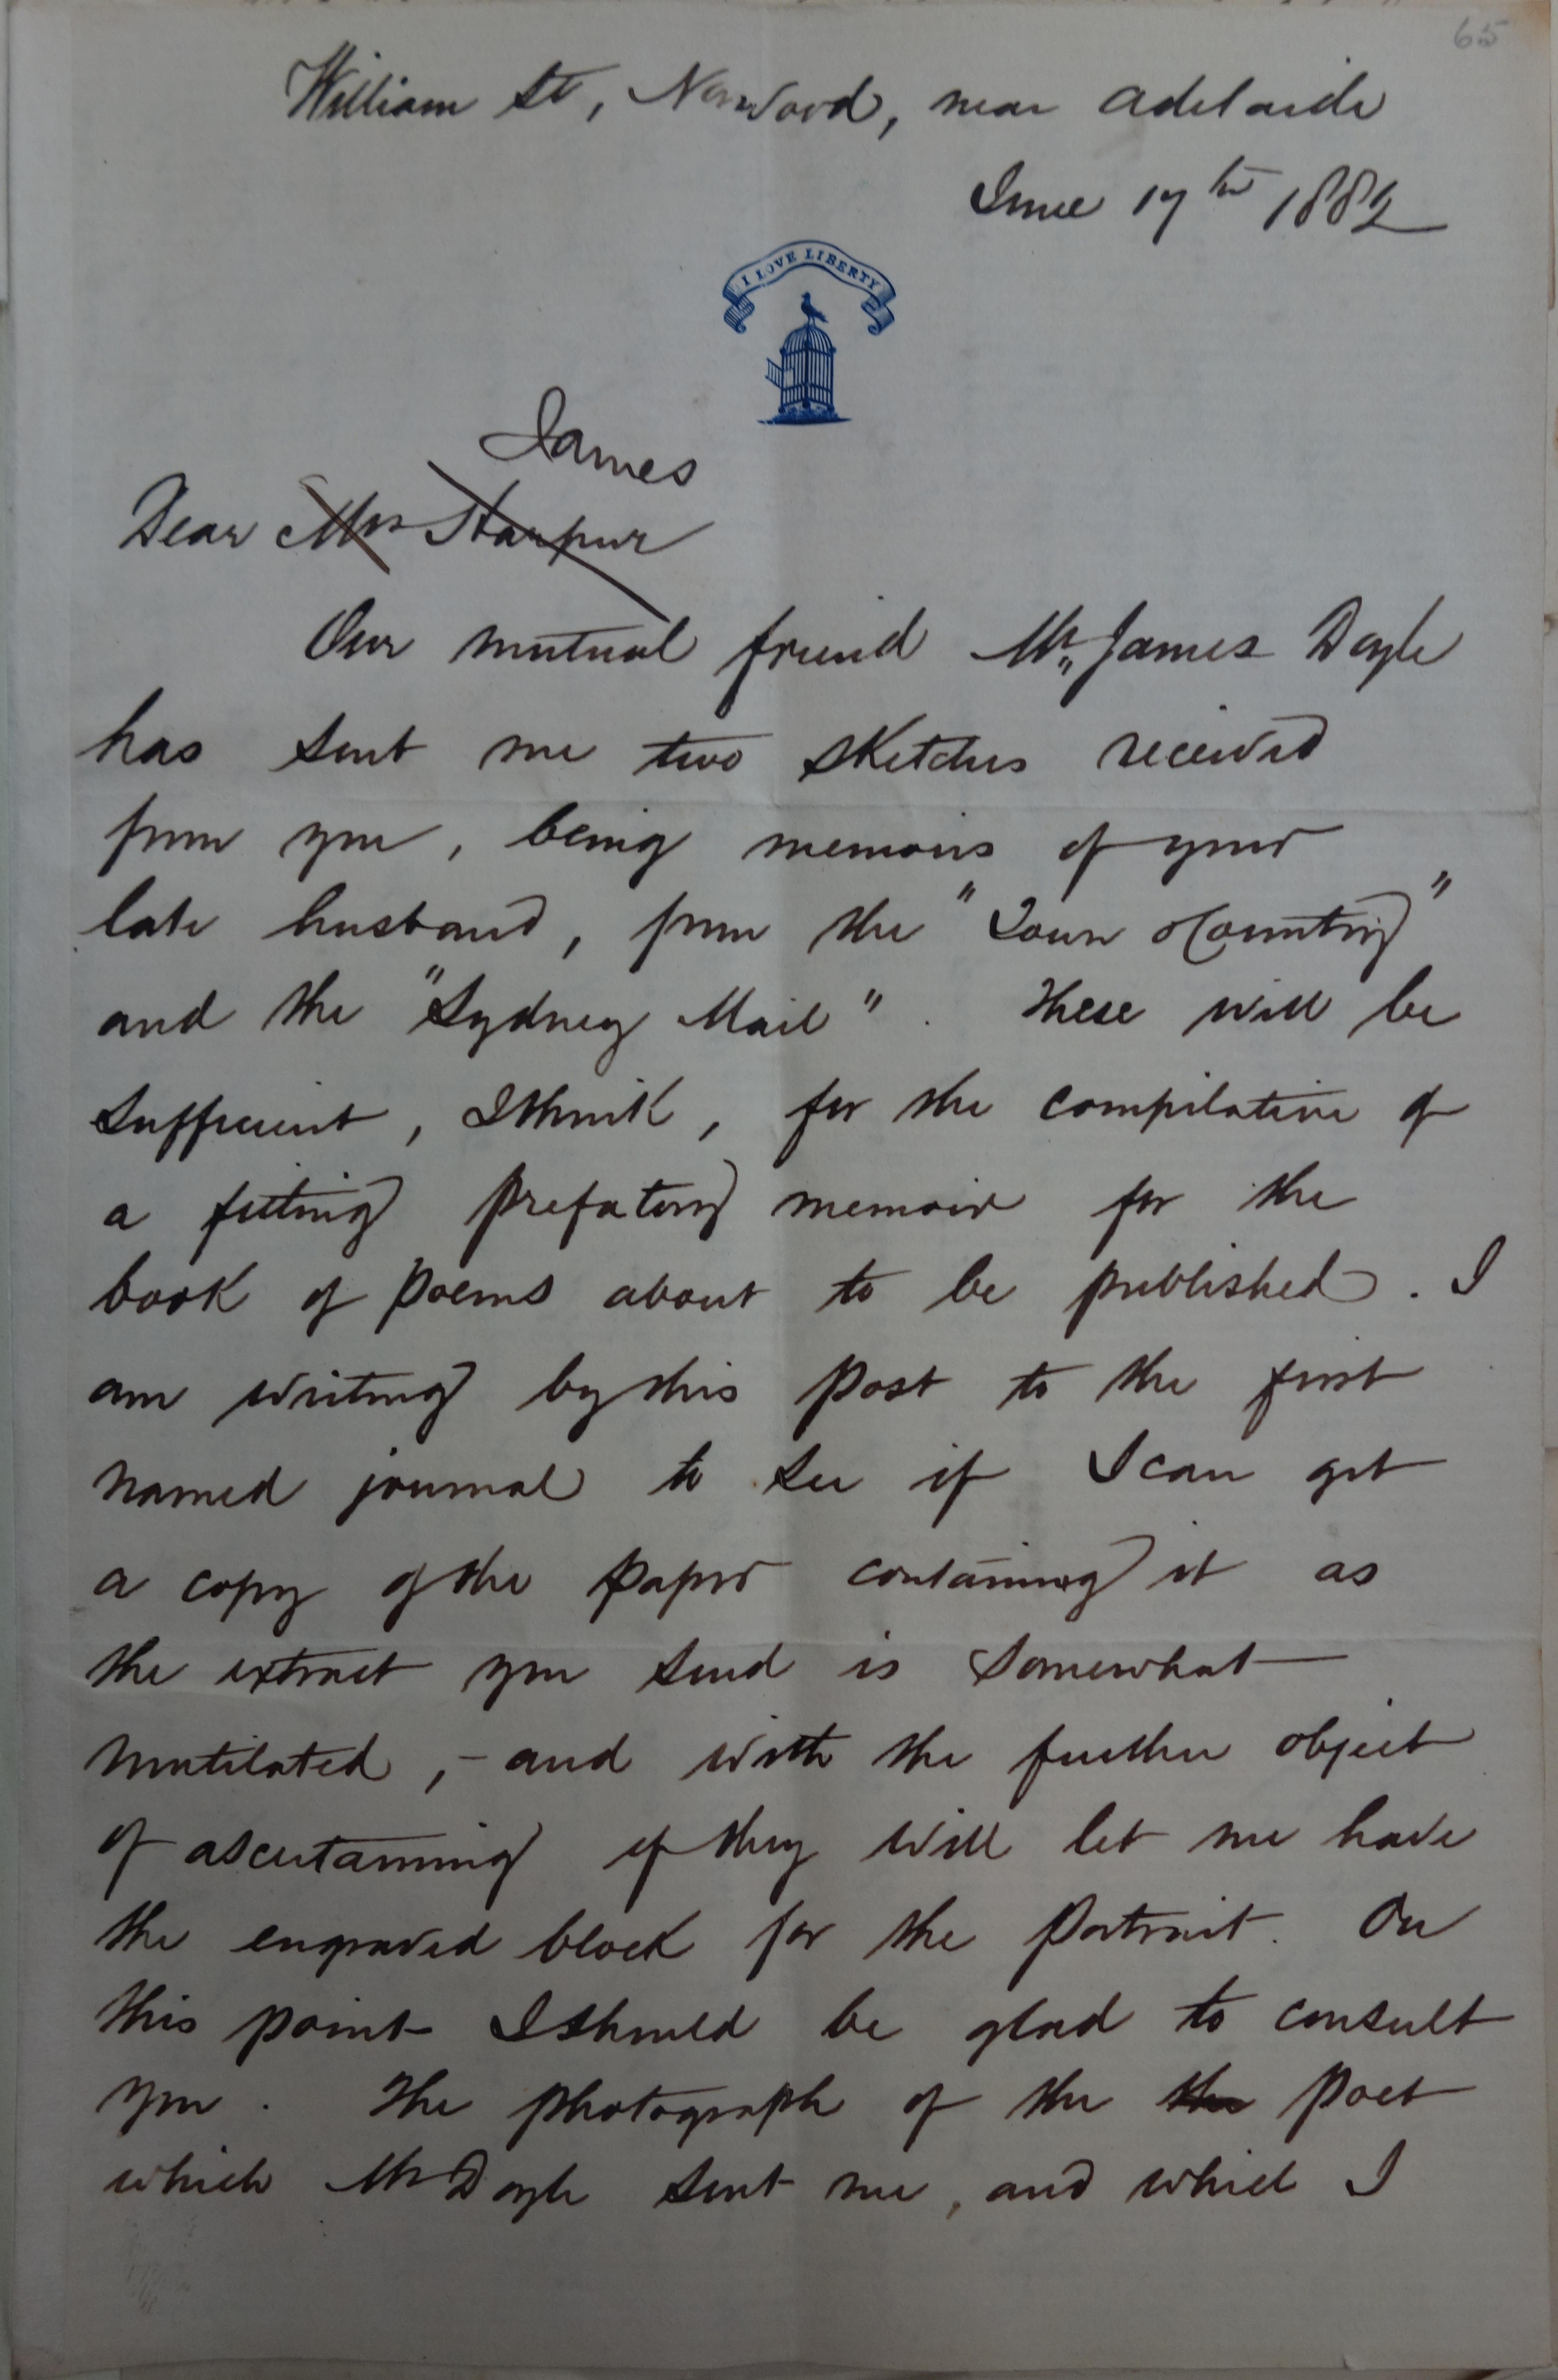 65
William St, Norwood, near Adelaide
June 17th 1882
I LOVE LIBERTY
James
Dear Mrs Harpur
Our mutual friend Mr James Doyle
has sent me two sketches received
from you, being memoirs of your
late husband, from the "Town & Country"
and the "Sydney Mail". These will be
sufficient, I think, for the compilation of
a fitting prefatory memoir for the
book of poems about to be published. I
am writing by this post to the first
named journal to see if I can get
a copy of the paper containing it as
the extract you send is somewhat
mutilated, - and with the further object
of ascertaining if they will let me have
the engraved block for the portrait. On
this point I should be glad to consult
you. The photograph of the the poet
which Mr Doyle sent me, and which I